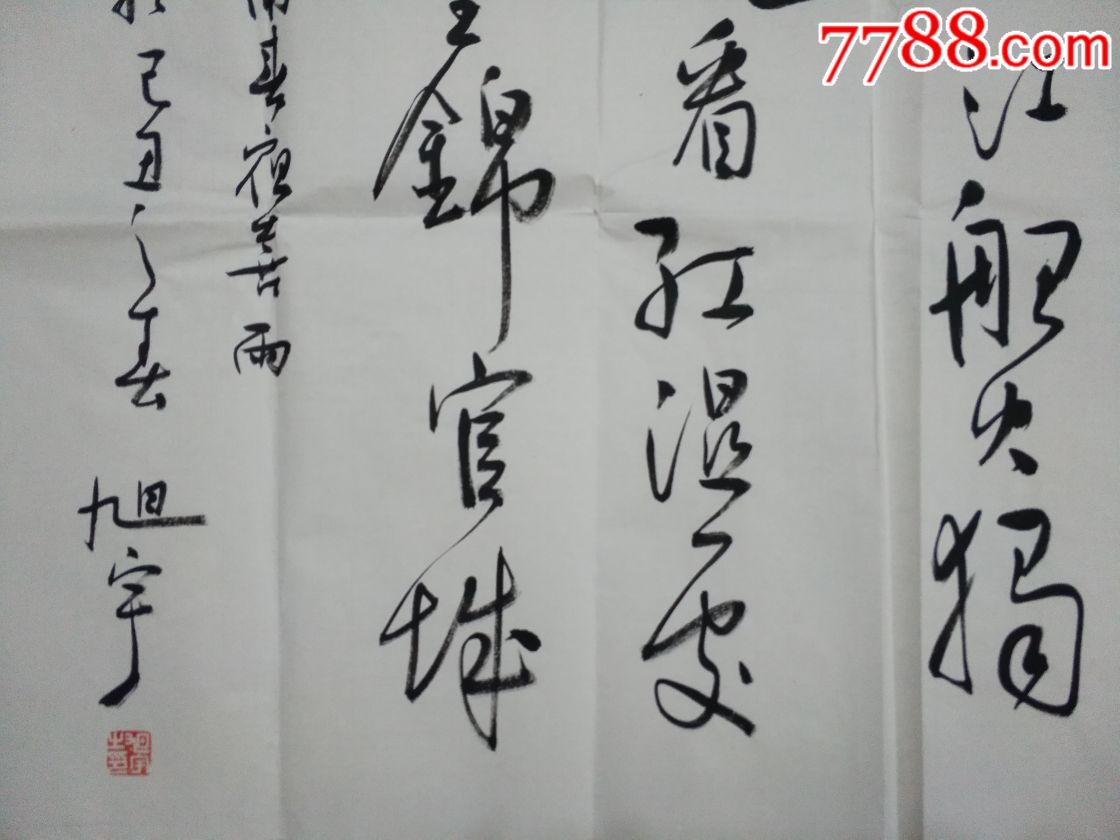 江船火獨
看紅濕處
錦官城
甫春夜喜雨
己丑之春 旭宇
旭宇之印
7788.com